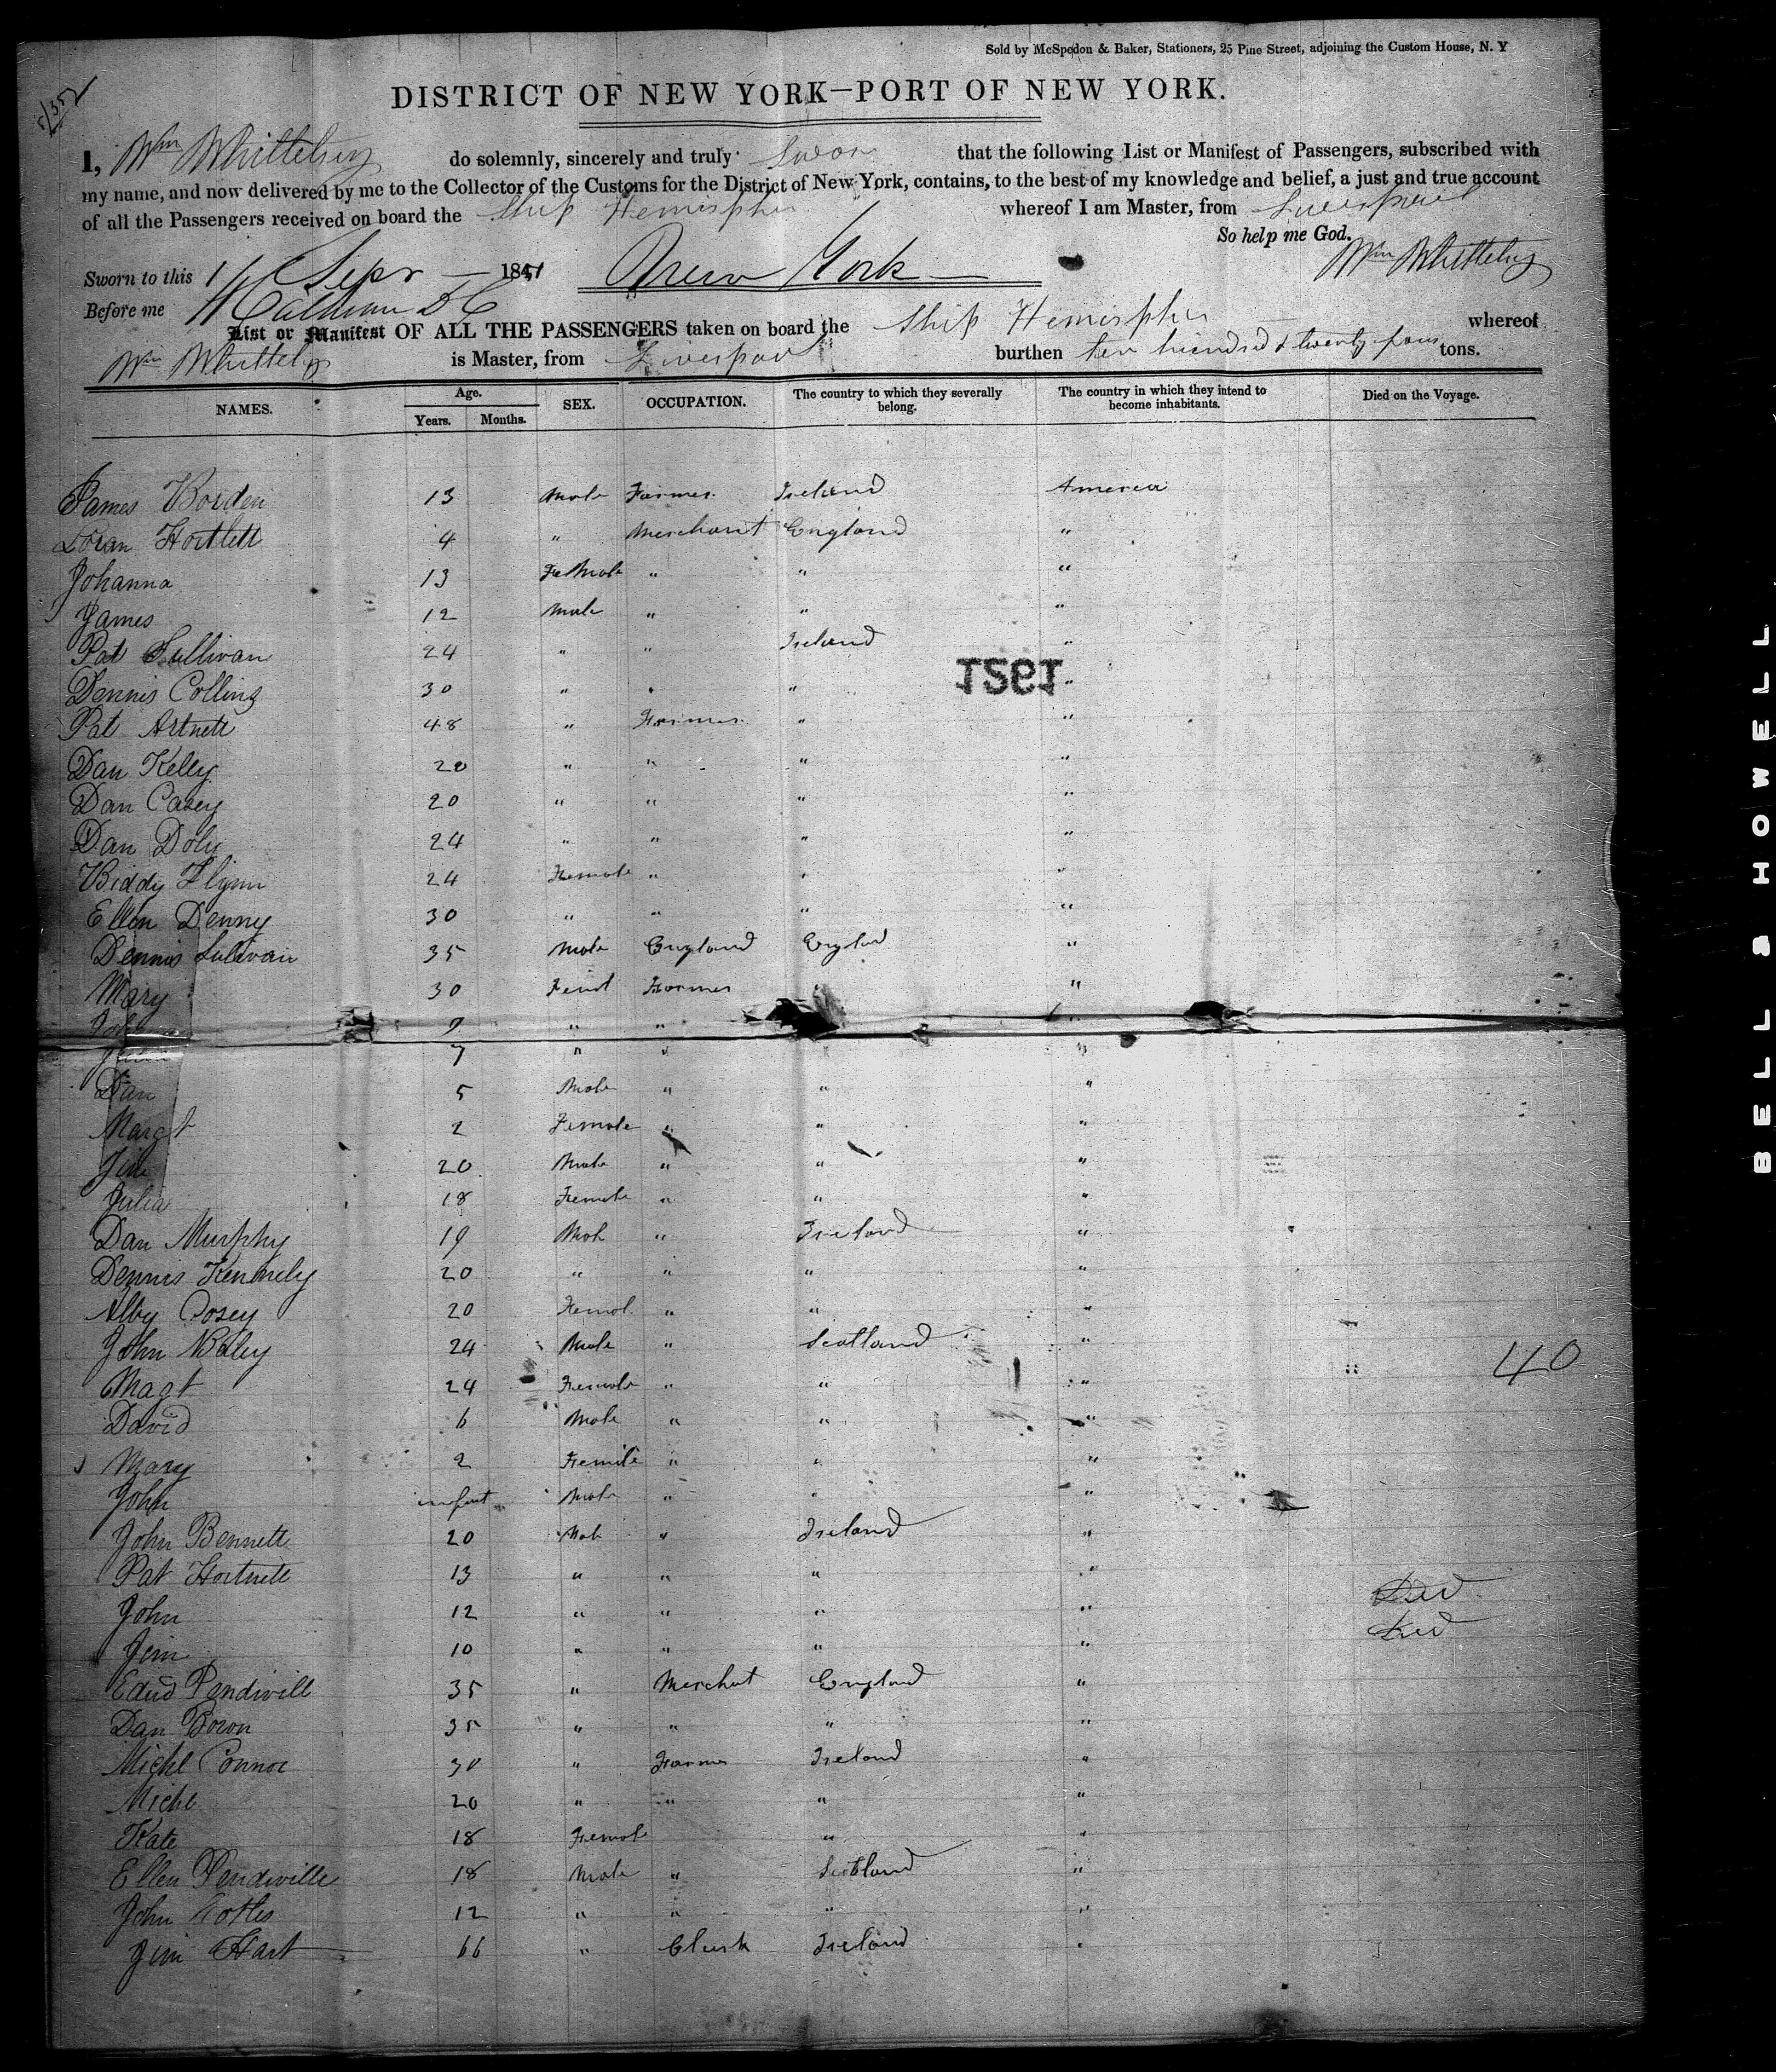 Sold by McSpedon & Baker, Stationers, 25 Pine Street, adjoining the Custom House, N. Y
DISTRICT OF NEW YORK—PORT OF NEW YORK.
I, Wm Whittelsey do solemnly, sincerely and truly swear that the following List or Manifest of Passengers, subscribed with
my name, and now delivered by me to the Collector of the Customs for the District of New York, contains, to the best of my knowledge and belief, a just and true account
of all the Passengers received on board the Ship Hemispher whereof I am Master, from Liverpool
So help me God.
Wm Whittelsey
Sworn to this Sepr 1851 New York
Before me
List or Manifest OF ALL THE PASSENGERS taken on board the Ship Hemispher whereof
Wm Whittelsey is Master, from Liverpool burthen ten hundred & twenty four tons.
NAMES. Age. Years. Months. SEX. OCCUPATION. The country to which they severally belong. The country in which they intend to become inhabitants. Died on the Voyage.
James 13 Male Farmer Ireland America
4 " Merchant England "
Johanna 13 Female " " "
James 12 Male " " "
Pat Sullivan 24 " " Ireland "
1521
Dennis Collins 30 " " " "
Pat Artnett 48 " Farmer " "
Dan Kelly 20 " " " "
Dan Casey 20 " " " "
Dan Doly 24 " " " "
Biddy Flynn 24 Female " " "
Ellen Denny 30 " " " "
Dennis Sulivan 35 Male England England "
Mary 30 Feml Farmer "
9 " "
7 " " " "
Dan 5 Male " " "
Margt 2 Female " " "
Jim 20 Male " " "
Julia 18 Female " " "
Dan Murphy 19 Male " Ireland "
Dennis Kennely 20 " " " "
Alby Cosey 20 Femal " " "
John Baley 24 Male " Scotland "
40
Magt 24 Female " " "
David 6 Male " " "
Mary 2 Female " " "
John infant Male " " "
John Bennett 20 Male " Ireland "
Pat Hartnett 13 " " " "
John 12 " " " " Died
Jim 10 " " " " Died
Edwd Pendivill 35 " Merchat England "
Dan Boron 35 " " " "
Michl Connor 30 " Farmer Ireland "
Michl 20 " " " "
Kate 18 Female " "
Ellen Pendiville 18 Male " Scotland "
John 12 " " " "
Jim Hart 66 " Clerk Ireland "
BELL & HOWELL